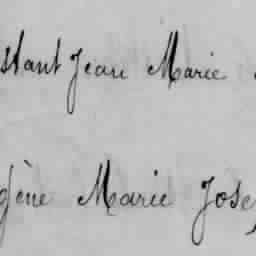 stant Jean Marie
gène Marie Jose